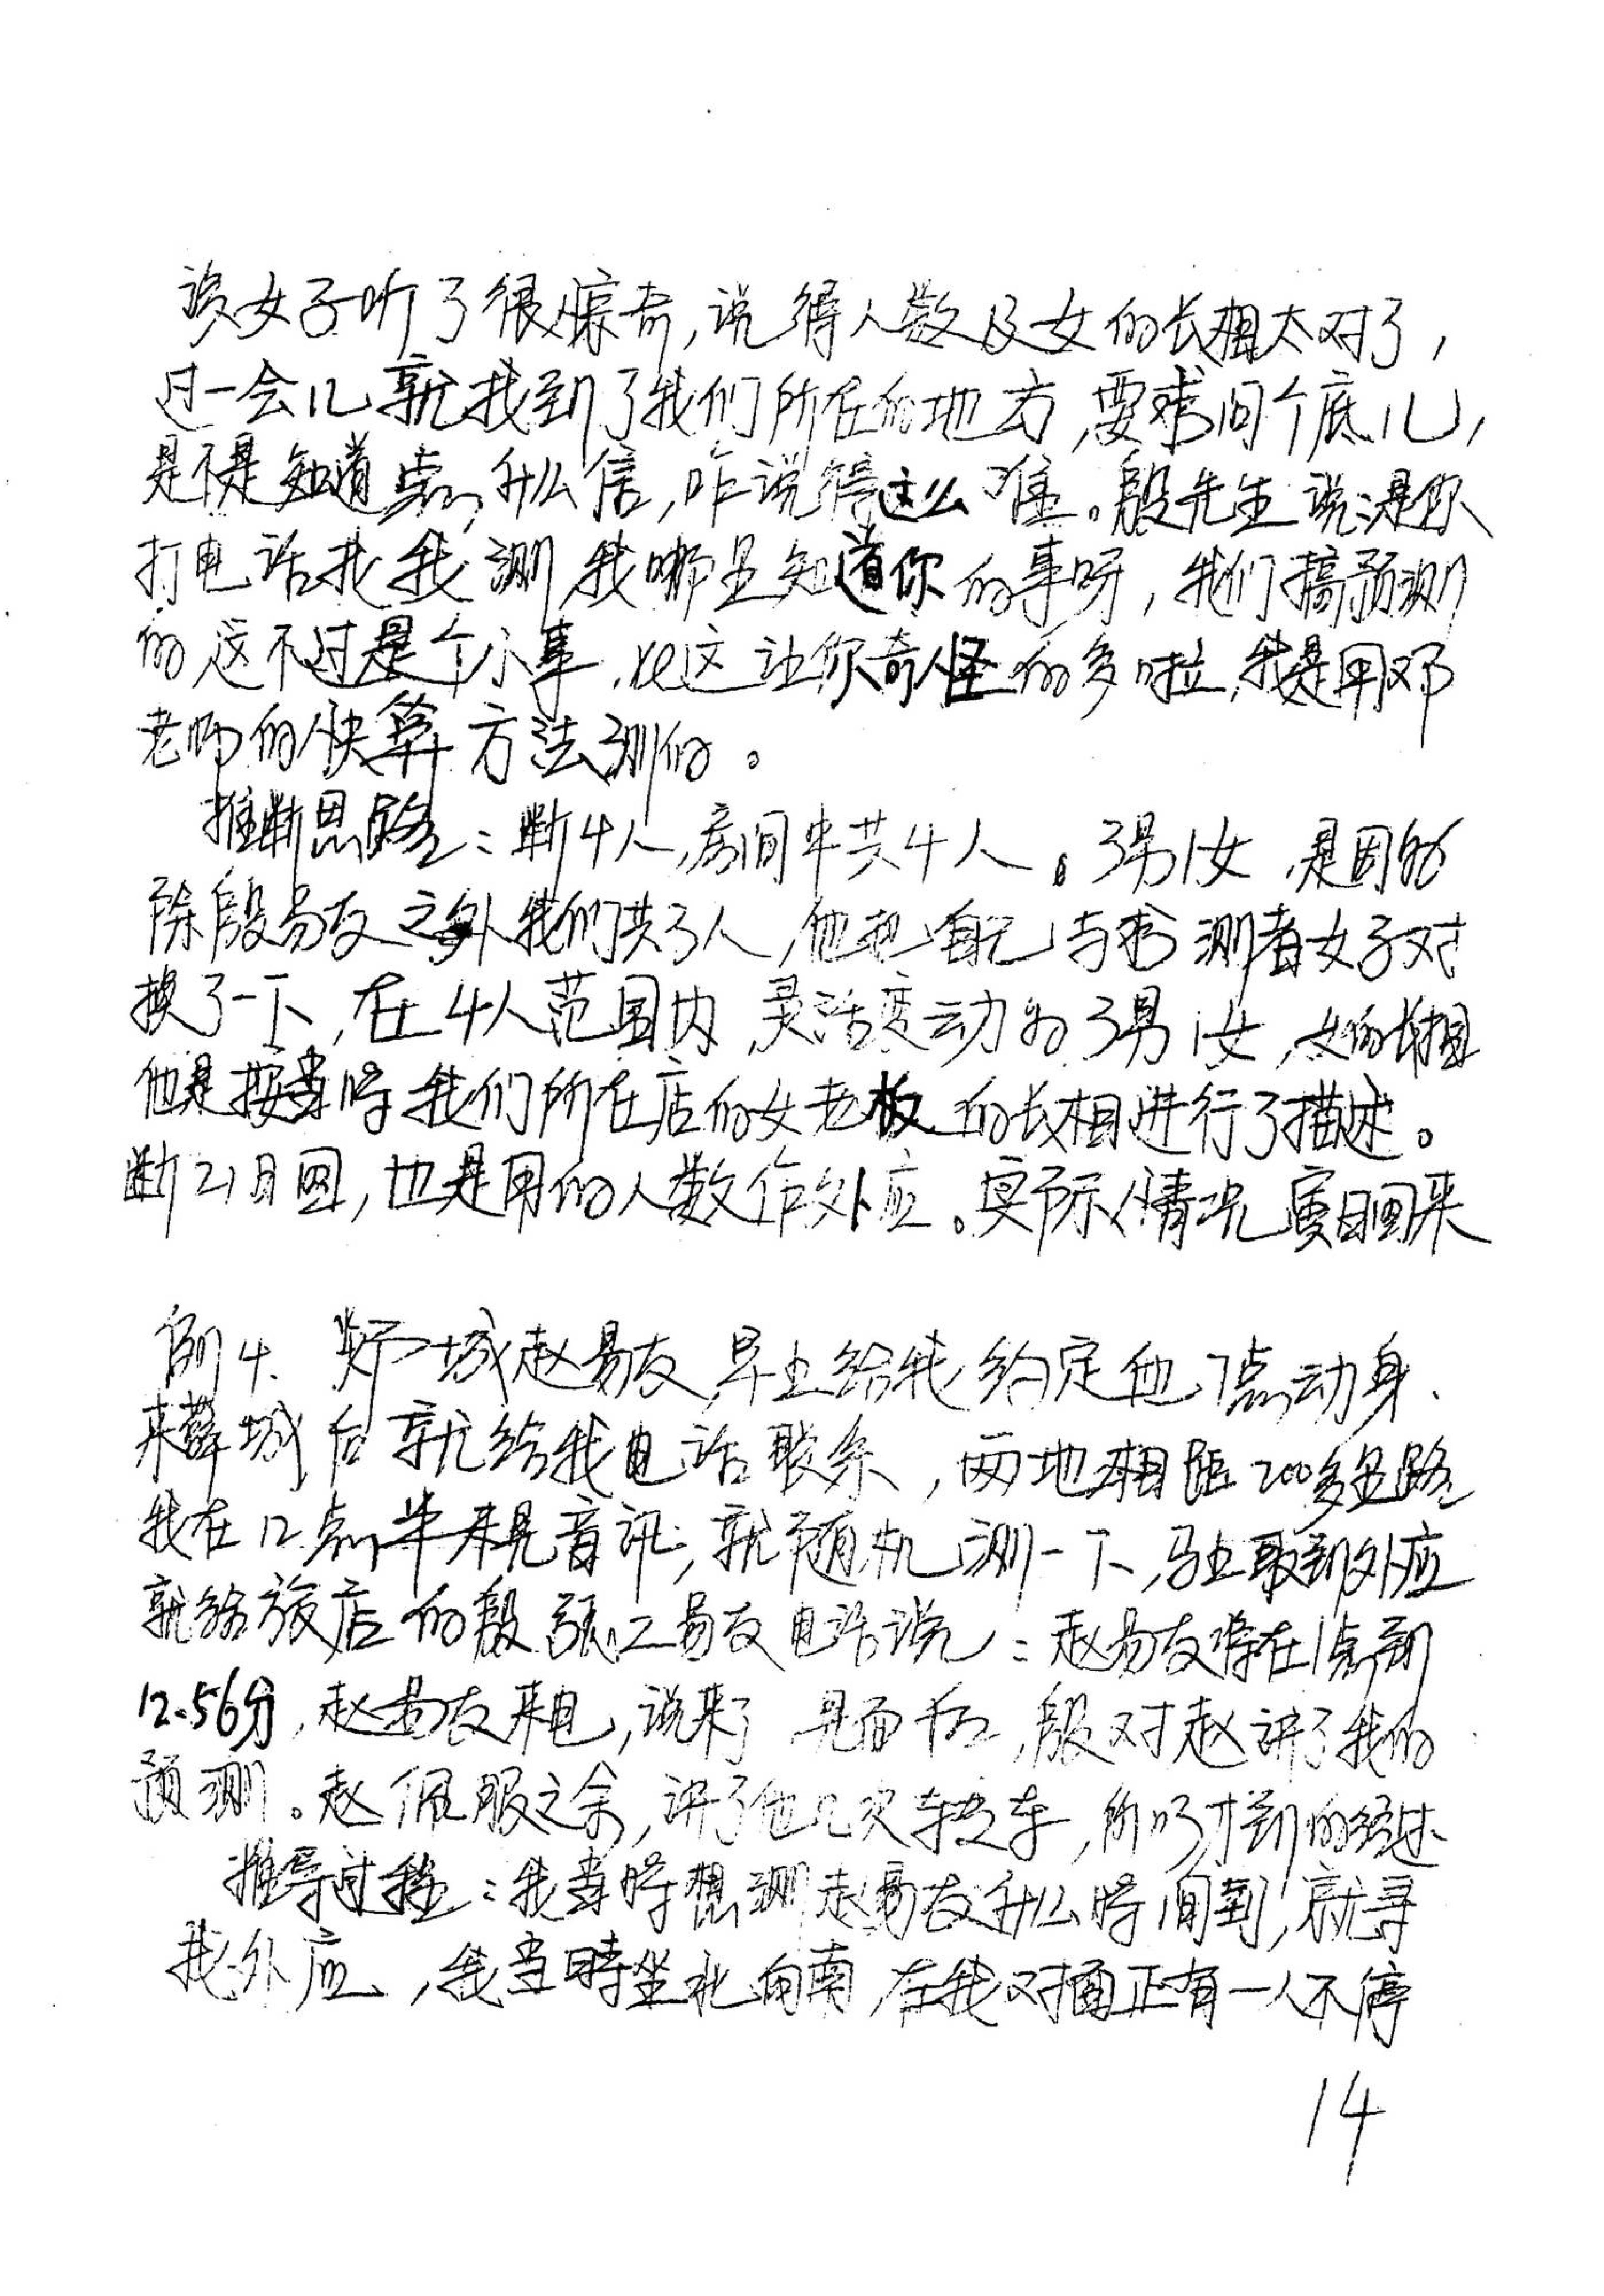 该女子听了很惊奇,说得人数及女的长相太对了,
过一会儿就找到了我们所在的地方,要求问个底儿,
是不是知道点什么信,咋说得这么准。殷先生说:是你
打电话找我测,我哪里知道你的事呀,我们搞预测
的,这不过是个小事,比这让你奇怪的多啦,我是用邓
老师的快算方法测的。
推断思路:断4人,房间中共4人。3男1女,是因为
除殷易友之外我们共3人,他把自己与求测者女子对
换了一下,在4人范围内,灵活变动为3男1女,女的长相
他是按当时我们所在店的女老板的长相进行了描述。
断21日回,也是用的人数作外应。实际情况 日回来
例4、 城赵易友,早上给我约定他7点动身、
来薛城后就给我电话联系,两地相距200多里路
我在12点半未见音讯,就随机测一下,马上取到外应
就给旅店的殷 易友电话说:赵易友将在1点到
12.56分,赵易友来电,说来了,见面后,殷对赵讲了我的
预测。赵佩服之余,讲了他几次转车,所以才到的经过
推导过程:我当时想测赵易友什么时间到,就寻
找外应,我当時坐北向南,在我对面正有一人不停
14